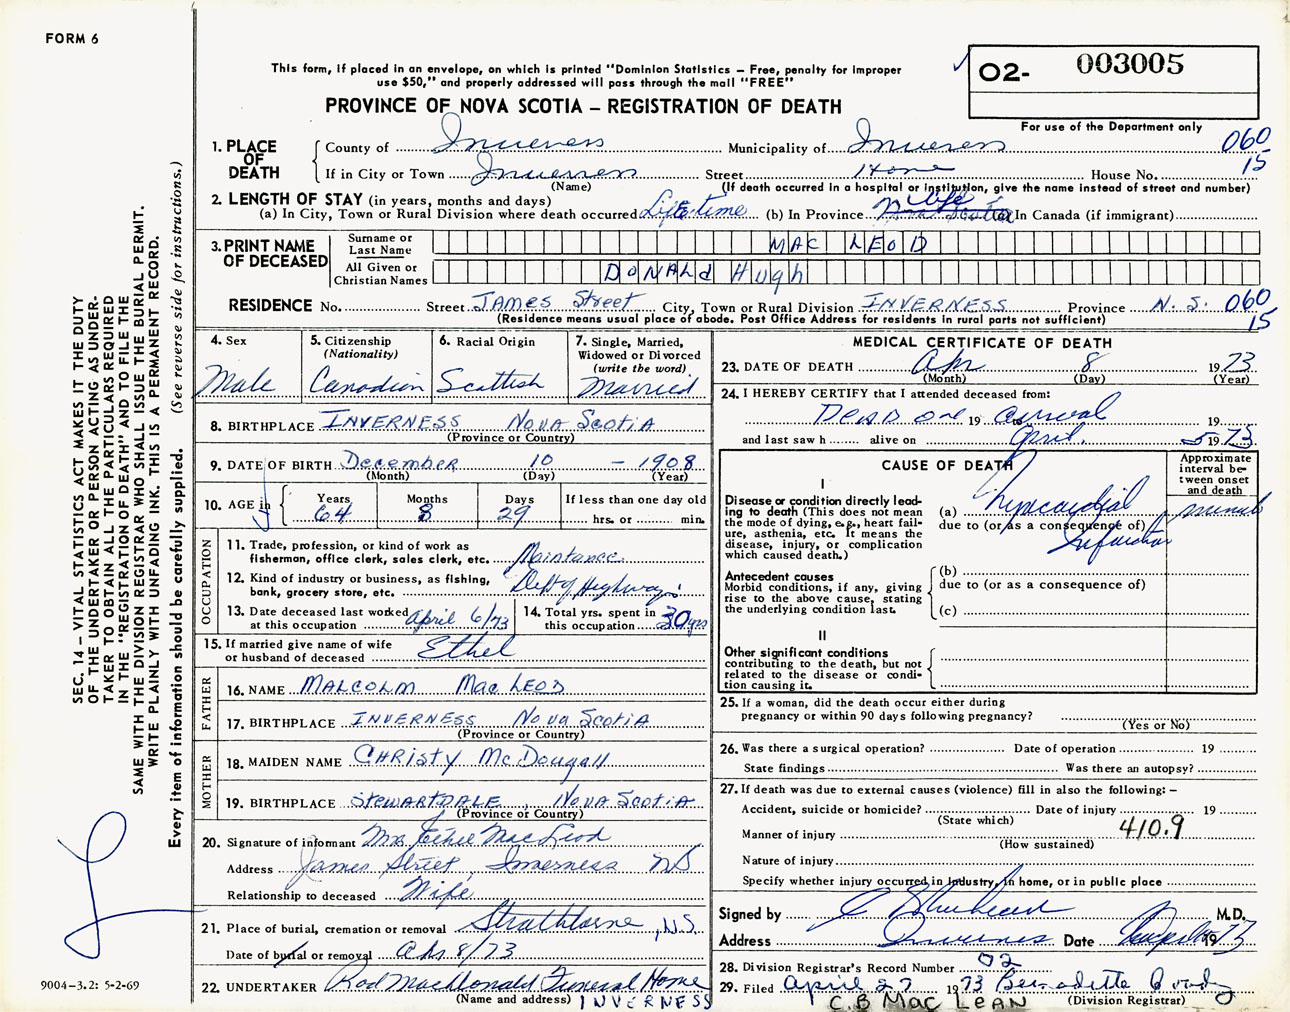 FORM 6
This form, if placed in an envelope, on which is printed "Dominion Statistics – Free, penalty for improper
use $50," and properly addressed will pass through the mail "FREE"
PROVINCE OF NOVA SCOTIA – REGISTRATION OF DEATH
02- 003005
For use of the Department only
1. PLACE OF DEATH
County of Inverness Municipality of Inverness 060
15
If in City or Town Inverness Street Home House No.
(Name) (If death occurred in a hospital or institution, give the name instead of street and number)
2. LENGTH OF STAY (in years, months and days)
(a) In City, Town or Rural Division where death occurred Life time (b) In Province Life Nova Scotia (c) In Canada (if immigrant)
3. PRINT NAME OF DECEASED
Surname or Last Name MAC LEOD
All Given or Christian Names DONALd Hugh
RESIDENCE No. Street JAMES Street City, Town or Rural Division INVERNESS Province N.S. 060
15
(Residence means usual place of abode. Post Office Address for residents in rural parts not sufficient)
4. Sex
Male
5. Citizenship
(Nationality)
Canadian
6. Racial Origin
Scottish
7. Single, Married,
Widowed or Divorced
(write the word)
Married
8. BIRTHPLACE INVERNESS NOVA SCOTIA
(Province or Country)
9. DATE OF BIRTH December 10 – 1908
(Month) (Day) (Year)
10. AGE in
Years Months Days If less than one day old
64 3 29 hrs. or min.
OCCUPATION
11. Trade, profession, or kind of work as
fisherman, office clerk, sales clerk, etc. Maintance
12. Kind of industry or business, as fishing,
bank, grocery store, etc. Dept of Highways
13. Date deceased last worked
at this occupation April 6/73
14. Total yrs. spent in
this occupation 30 yrs
15. If married give name of wife
or husband of deceased Ethel
FATHER
16. NAME MALCOLM Mac LEOD
17. BIRTHPLACE INVERNESS Nova Scotia
(Province or Country)
MOTHER
18. MAIDEN NAME CHRISTY McDougall
19. BIRTHPLACE STEWARTDALE, NOVA SCOTIA
(Province or Country)
20. Signature of informant Mrs Ethel MacLeod
Address James Street, Inverness NS
Relationship to deceased Wife
21. Place of burial, cremation or removal Strathlorne, N.S.
Date of burial or removal Apr. 8/73
22. UNDERTAKER Rod MacDonald Funeral Home
(Name and address) INVERNESS
MEDICAL CERTIFICATE OF DEATH
23. DATE OF DEATH Apr 8 1973
(Month) (Day) (Year)
24. I HEREBY CERTIFY that I attended deceased from:
Dead on 19 arrival 19
and last saw h alive on April 5 1973
CAUSE OF DEATH
Approximate interval between onset and death
I
Disease or condition directly leading to death (This does not mean the mode of dying, e.g., heart failure, asthenia, etc. It means the disease, injury, or complication which caused death.)
(a) Myocardial
due to (or as a consequence of)
Infarction
Antecedent causes
Morbid conditions, if any, giving rise to the above cause, stating the underlying condition last.
(b)
due to (or as a consequence of)
(c)
II
Other significant conditions
contributing to the death, but not related to the disease or condition causing it.
25. If a woman, did the death occur either during
pregnancy or within 90 days following pregnancy?
(Yes or No)
26. Was there a surgical operation? Date of operation 19
State findings Was there an autopsy?
27. If death was due to external causes (violence) fill in also the following: –
Accident, suicide or homicide? Date of injury 19
(State which)
Manner of injury 410.9
(How sustained)
Nature of injury
Specify whether injury occurred in industry, in home, or in public place
Signed by M.D.
Address Inverness Date 1973
28. Division Registrar's Record Number 02
29. Filed April 27 1973 Bernadette
C.B MacLEAN (Division Registrar)
SEC. 14 – VITAL STATISTICS ACT MAKES IT THE DUTY
OF THE UNDERTAKER OR PERSON ACTING AS UNDER-
TAKER TO OBTAIN ALL THE PARTICULARS REQUIRED
IN THE "REGISTRATION OF DEATH" AND TO FILE THE
SAME WITH THE DIVISION REGISTRAR WHO SHALL ISSUE THE BURIAL PERMIT.
WRITE PLAINLY WITH UNFADING INK. THIS IS A PERMANENT RECORD.
Every item of information should be carefully supplied. (See reverse side for instructions.)
9004-3.2: 5-2-69